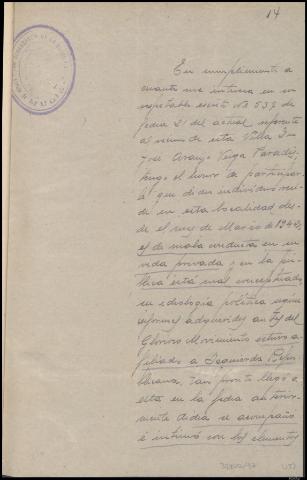 14
En cumplimiento a
cuanto me interesa en su
respetable escrito nº 537 de
fecha 21 del actual referente
al vecino de esta Villa Don
José Araujo Veiga Paradis,
tengo el honor de participar
a que dicho individuo resi-
de en esta localidad des-
de el mes de Marzo de 1942,
es de mala conducta en su
vida privada y en la pú-
blica está mal conceptuado,
su ideologia politica segun
informes adquiridos antes del
Glorioso Movimiento estuvo a-
filiado a Izquierda Repu-
blicana, tan pronto llegó a
esta en la fecha anterior-
mente dicha se acompañó
é intimó con los elementos